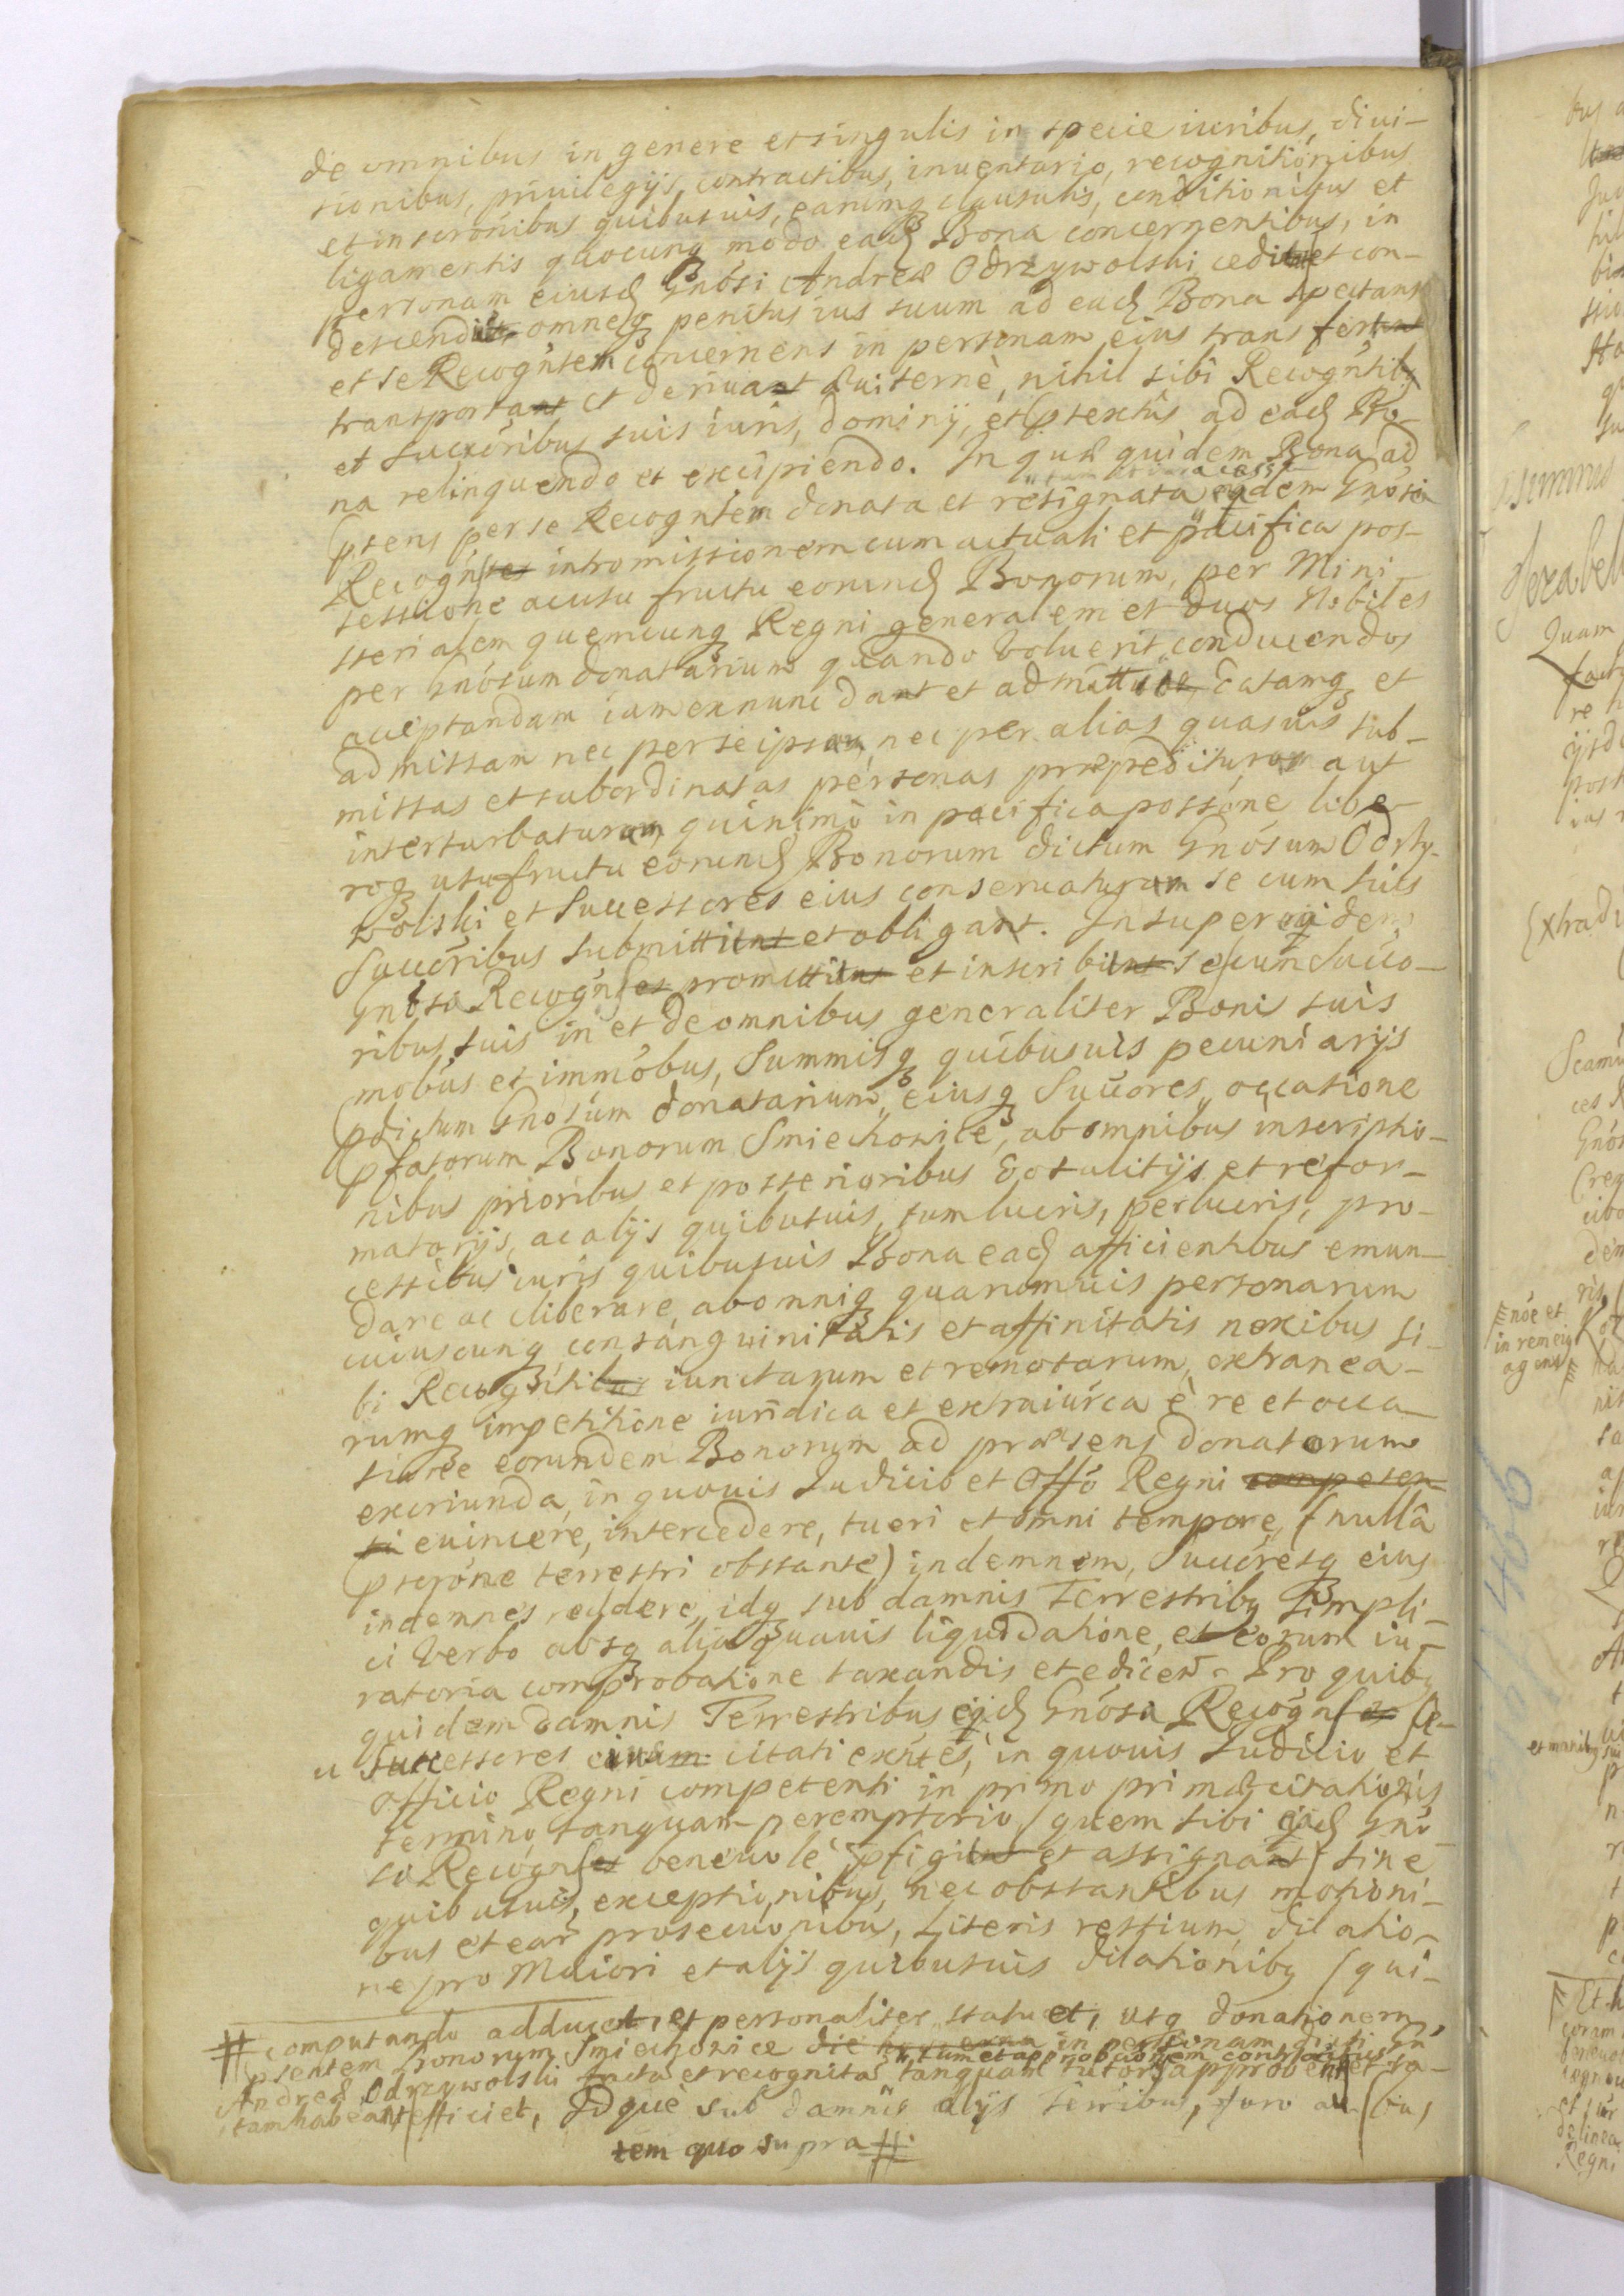 de omnibus in genere et singulis in specie iuribus, diui-
sionibus, priuilegijs, contractibus, inuentario, recognitionibus
et inscrōnibus quibusuis, earumq clausulis, conditionibus et
ligamentis quocunq modo eadē Bona concernentibus, in
personam eiusdē Gnōsi Andreæ Odrzywolski cedit et con-
descendit, omneq penitus ius suum ad eadē Bona spectans
et se Recogñtem concernens in personam eius transfert
transportat et deriuat Quiternè, nihil sibi Recogñti
et succōribus suis iuris, dominij, et ptextûs ad eadē Bo-
na relinquendo et excipiendo. In quæ quidem Bona ad
psens per se Recogñtem donata et resignata eadem Gnosa
Recogñ intromissionem cum actuali et pacifica pos-
sessione ac usu fructu eorundē Bonorum, per Mini
sterialem quemcunq Regni generalem et duos Nobiles
per Gnōsum donatarium quando voluerit conducendos
acceptandam iam ex nunc dat et admittit Datamq et
admissam nec per se ipsam, nec per alias quasuis sub-
missas et subordinatas personas præpedituram aut
interturbaturam, quinimò in pacifica possōne libe-
roq usufructu eorundē Bonorum dictum Gnōsum Odrzy-
wolski et Successores eius conseruaturam se cum suis
Succōribus submittit et obligat. Insuper eadem
Gnōsa Recogñ promittit et inscribit se cum Succo-
ribus suis in et de omnibus generaliter Bonis suis
mobūs et immōbus, Summisq quibusuis pecuniarijs
pdictum Gnōsum donatarium, eiusq Succōres, occatione
pfatorum Bonorum Smiechowice, ab omnibus inscriptio-
nibus prioribus et posterioribus Dotalitijs et refor-
matorijs, ac alijs quibusuis, tum lucris, perlucris, pro-
cessibus iuris quibusuis Bona eadē afficientibus emun-
dare ac eliberare, ab omniq quarumuis personarum
cuiuscunq consanguinitatis et affinitatis nexibus si-
bi Recogñti iunctarum et remotarum, extranea-
rumq impetitione iuridica et extraiurica è re et occa-
sione eorundem Bonorum ad præsens donatorum
exoriunda, in quouis Iudicio et Offo Regni competen-
ti euincere, intercedere, tueri et omni tempore, (nullâ
pscrōne terrestri obstante) indemnem, Succōresq eius
indemnes reddere, idq sub damnis Terrestribq simpli-
ci verbo absq alia quauis liquidatione, et eorum iu-
ratoria comprobatione taxandis et edicen. Pro quibq
quidem damnis Terrestribus eadē Gnōsa Recogñ
ac Successores citati exntes, in quouis Iudicio et
Officio Regni competenti in primo primæ citationis
termino, tanquam peremptorio (quem sibi eadē Gnō
sa Recogñ beneuolè pfigit et assignat) sine
quibusuis exceptionibus, nec obstantibus motioni-
bus et ear prosecuonibus, Literis restium, dilatio-
ne pro Maiori et alijs quibusuis dilationibq (qui-
# computando adducet, et personaliter statuet, utq donationem
psentem Bonorum Smiechowice in personam dicti Gn
Andreæ Odrzywolski factam et recognitam tanquam tutores approbent et ra-
tam habeant efficiet, Idque sub damnis alijs Terribus, foro au
tem quo supra #